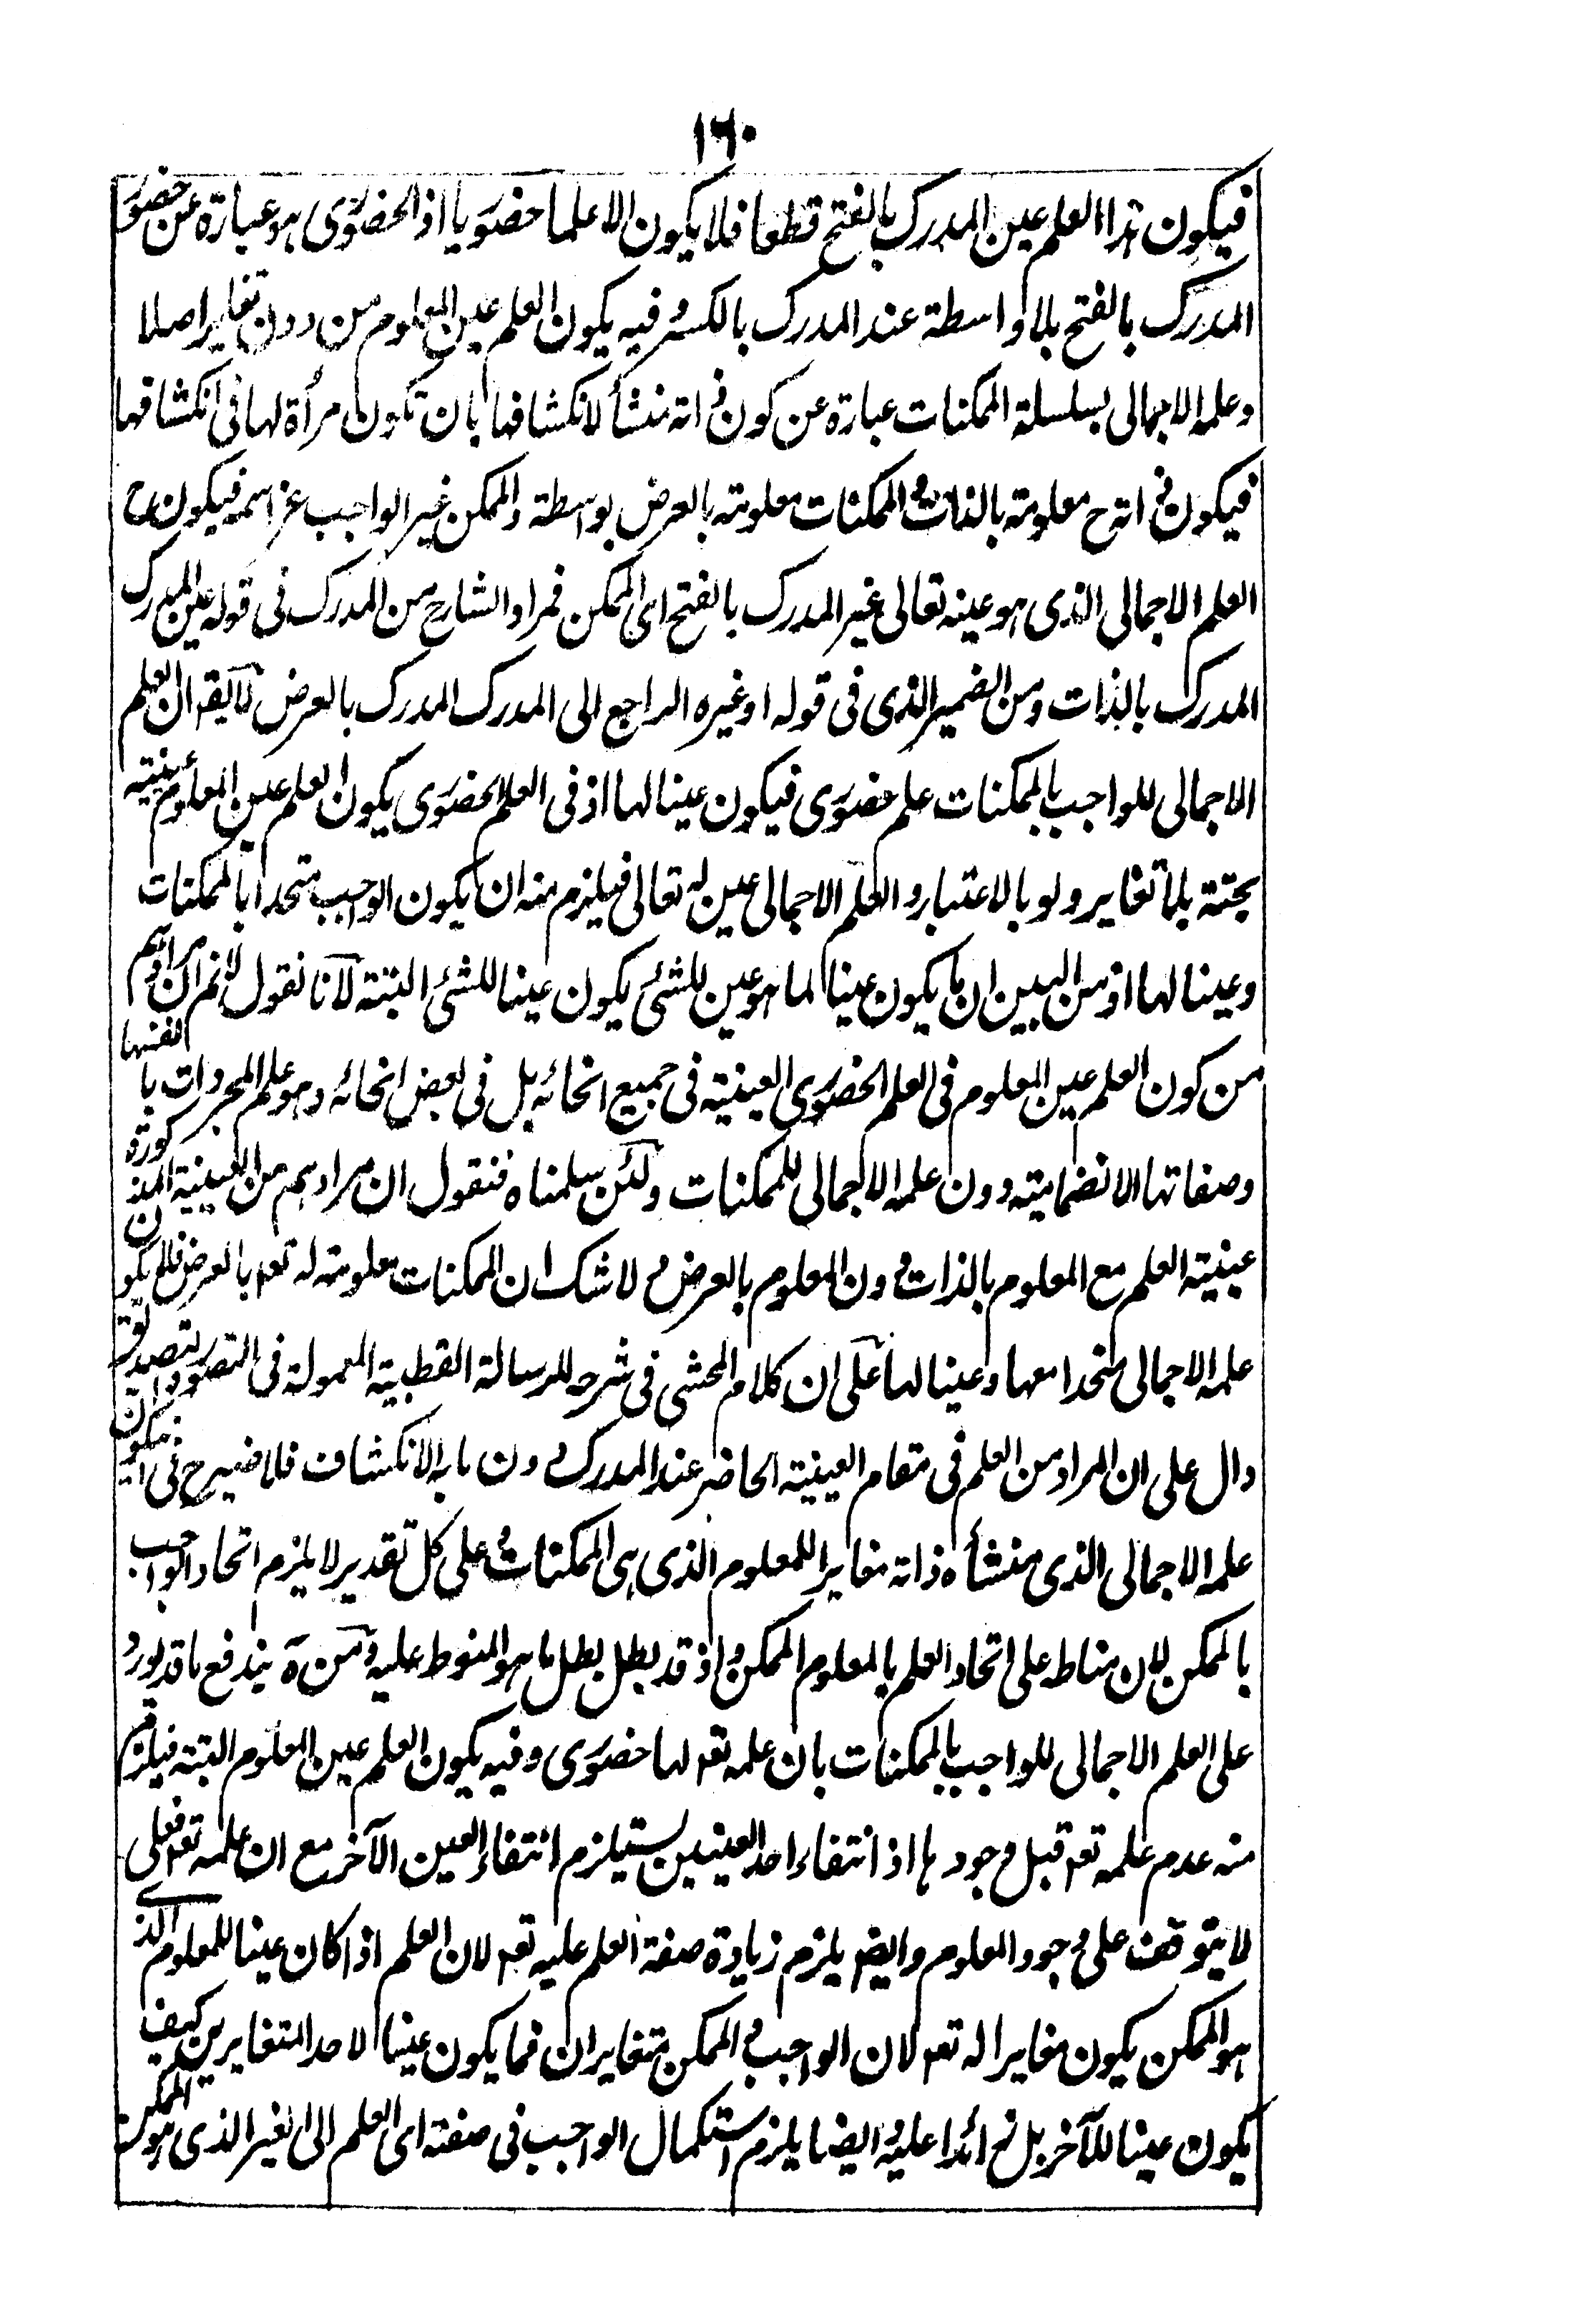 ١٦٠
فيكون هذا العلم عين المدرك بالفتح قطعا فلا يكون الا علما حضوريا اذ الحضوري هو عبارة عن حضور
المدرك بالفتح بلا واسطة عند المدرك بالكسر وفيه يكون العلم عين المعلوم من دون تغاير اصلا
وعلمه الاجمالي بسلسلة الممكنات عبارة عن كون ذاته منشأ لانكشافها بان تكون مرأة لها في انكشافها
فيكون ذاته ح معلومة بالذات والممكنات معلومة بالعرض بواسطة والممكن غير الواجب عز اسمه فيكون ح
العلم الاجمالي الذي هو عينه تعالى غير المدرك بالفتح اى الممكن فمراد الشارح من المدرك في قوله عين المدرك
المدرك بالذات ومن الضمير الذي في قوله او غيره الراجع الى المدرك المدرك بالعرض لا يقه ان العلم
الاجمالي للواجب بالممكنات علم حضوري فيكون عينا لها اذ في العلم الحضوري يكون العلم عين المعلوم عينية
بحتة بلا تغاير ولو بالاعتبار والعلم الاجمالي عين له تعالى فيلزم منه ان يكون الواجب متحدا بالممكنات
وعينا لها اذ من البين ان ما يكون عينا لما هو عين للشئ يكون عينا للشئ البتة لانا نقول لا نم ان مرادهم
من كون العلم عين المعلوم في العلم الحضوري العينية في جميع انحائه بل في بعض انحائه وهو علم المجردات بانفسها
وصفاتها الانضمامية دون علمه الاجمالي للممكنات ولئن سلمناه فنقول ان مرادهم من العينية المذكورة
عينية العلم مع المعلوم بالذات دون المعلوم بالعرض ولا شك ان الممكنات معلومة له تعه بالعرض فلم يكون
علمه الاجمالي متحدا معها وعينا لها على ان كلام المحشي في شرحه للرسالة القطبية المعمولة في التصور والتصديق
دال على ان المراد من العلم في مقام العينية الحاضر عند المدرك دون ما به الانكشاف فلا ضير ح في ان يكون
علمه الاجمالي الذي منشأه ذاته مغايرا للمعلوم الذي هي الممكنات وعلى كل تقدير لا يلزم اتحاد الواجب
بالممكن لان مناطه على اتحاد العلم بالمعلوم الممكن واذ قد بطل بطل ما هو المنوط عليه ومن ه يندفع ما قد يورد
على العلم الاجمالي للواجب بالممكنات بان علمه تعه لها حضوري وفيه يكون العلم عين المعلوم البتة فيلزم
منه عدم علمه تعه قبل وجودها اذ انتفاء احد العينين يستلزم انتفاء العين الآخر مع ان علمه تعه فعلى
لا يتوقف على وجود المعلوم وايضه يلزم زيادة صفة العلم عليه تعه لان العلم اذا كان عينا للمعلوم الذي
هو الممكن يكون مغايرا له تعه لان الواجب والممكن متغايران فما يكون عينا لاحد المتغايرين كيف
يكون عينا للآخر بل زائدا عليه وايضا يلزم استكمال الواجب في صفته اى العلم الى الغير الذي هو الممكن